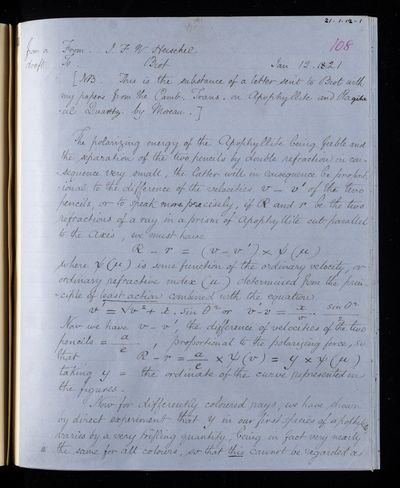 21-1.12-1
108
from a draft
From . J. F. W. Herschel
To . Biot Jan 12. 1821
[NB. This is the substance of a letter sent to Biot with
my papers from the Camb. Trans. on Apophyllite and Plagihe
al Quartz. by Moreau.]
The polarizing energy of the Apophyllite being feeble and
the separation of the two pencils by double refraction in con-
sequence very small, the latter will in consequence be proport-
ional to the difference of the velocities v — v' of the two
pencils, or to speak more precisely, if R and r be the two
refractions of a ray in a prism of Apophyllite cut parallel
to the Axis, we must have
R - r = (v - v') × ψ(μ)
where ψ(μ) is some function of the ordinary velocity, or
ordinary refractive index (μ) determined from the prin-
-ciple of least action combined with the equation
v' = √v² + x. sin θ² or v'-v = x/v . sin θ²/2
Now we have v - v', the difference of velocities of the two
pencils = a/c, proportional to the polarizing force, so
that R - r = a/c × ψ(v) = y × ψ(μ)
taking y = the ordinate of the curve represented in
the figures.
Now for differently coloured rays, we have shown
by direct experiment that y in our first species of apophyllite
varies by a very trifling quantity, being in fact very nearly
the same for all colours, so that this cannot be regarded as